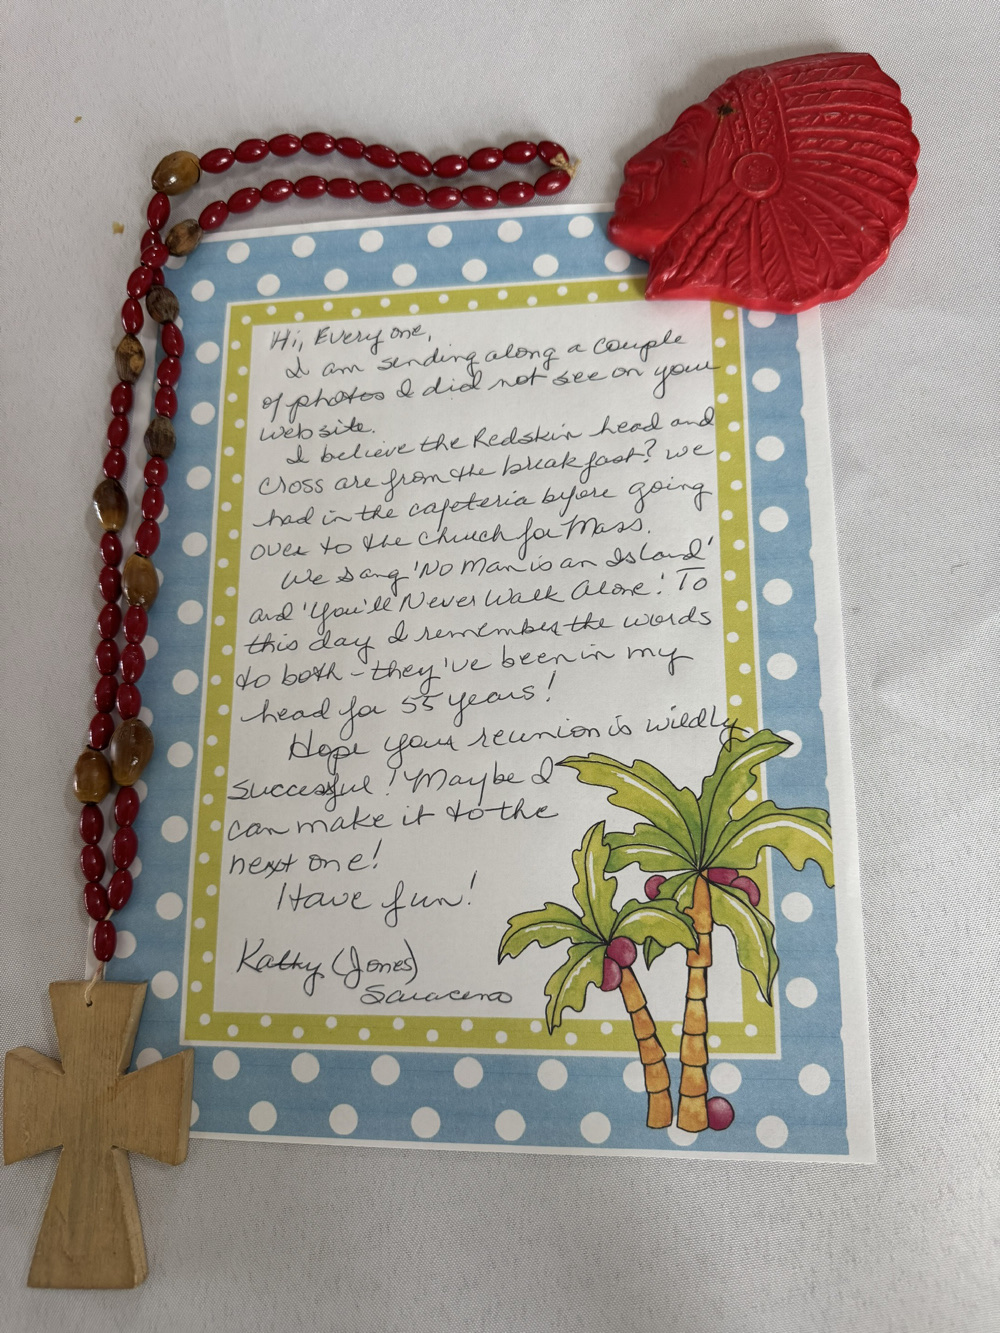 Hi, Everyone,
I am sending along a couple
of photos I did not see on your
website.
I believe the Redskin head and
cross are from the breakfast? we
had in the cafeteria before going
over to the church for Mass.
We sang 'No Man is an Island'
and 'You'll Never Walk Alone'. To
this day I remember the words
to both - they've been in my
head for 55 years!
Hope your reunion is wildly
successful! Maybe I
can make it to the
next one!
Have fun!
Kathy (Jones)
Saraceno